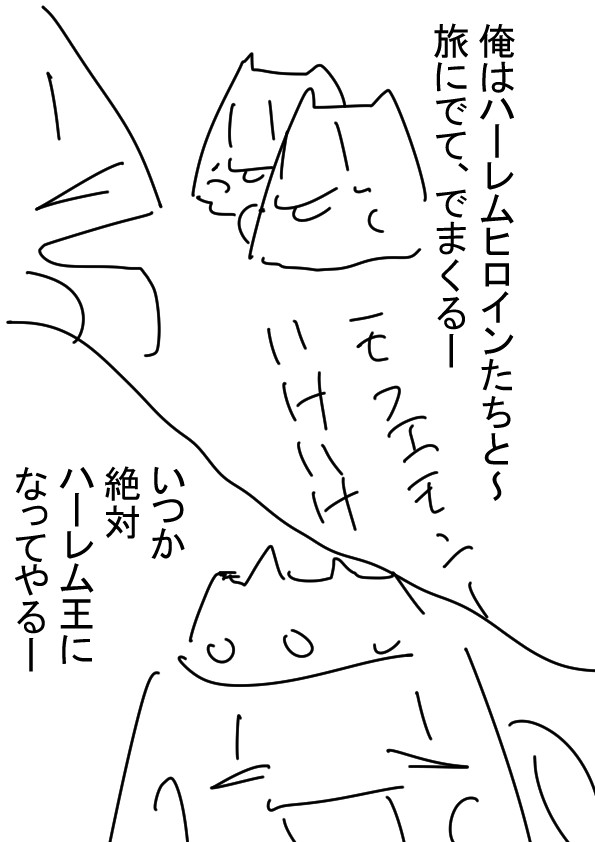 俺はハーレムヒロインたちと～
旅にでて、でまくるー
モフェモン
いけいけ
いつか
絶対
ハーレム王に
なってやるー